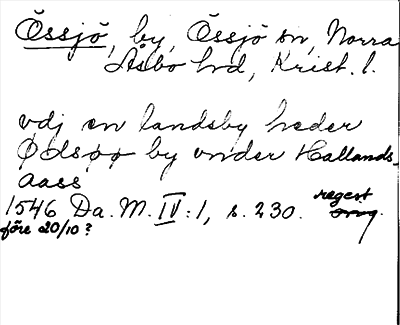 Össjö, by, Össjö sn, Norra
Åsbo hd, Krist. l.
vdj en landsby heder
Ødsøø by vnder Hallands-
aass
1546 Da. M. IV:1, s. 230. regest
före 20/10?